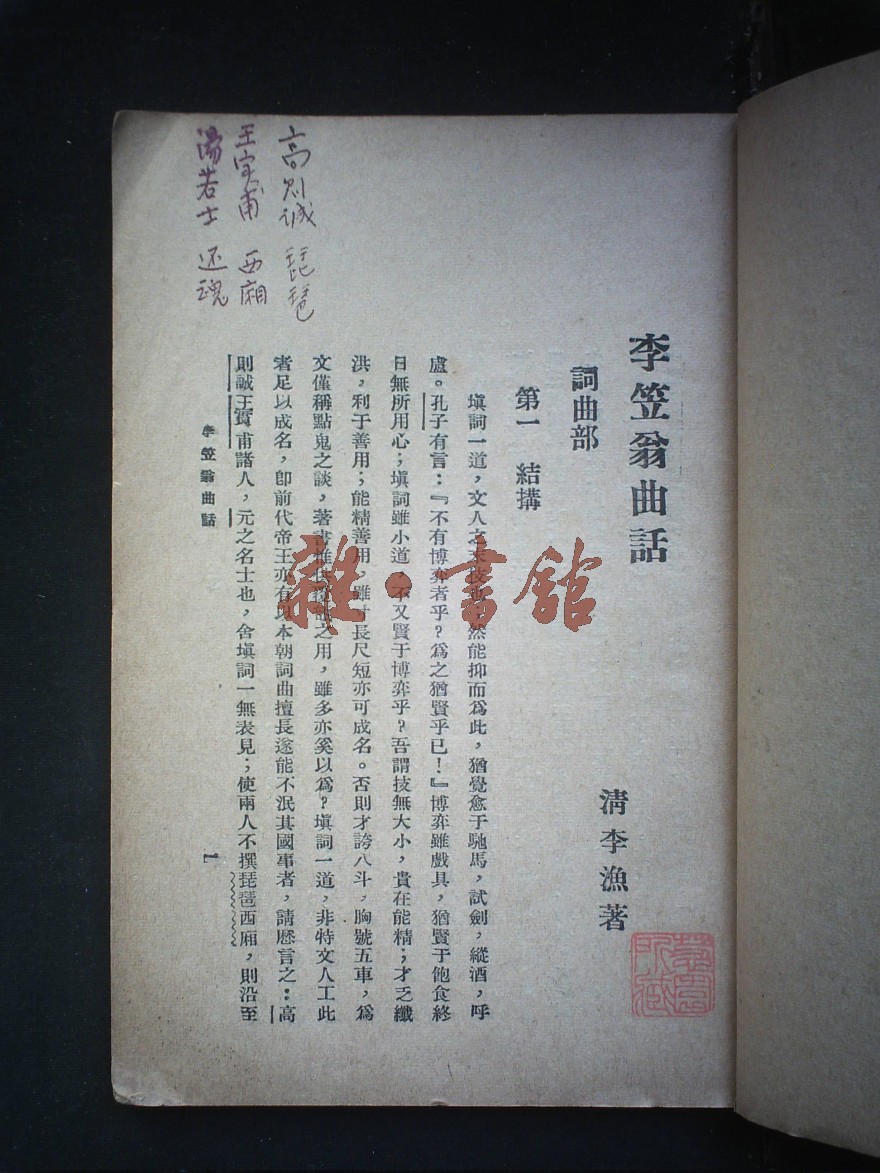 高则诚 琵琶
王实甫 西廂
湯若士 还魂
李笠翁曲話
清李漁著
詞曲部
第一 結搆
填詞一道，文人之末技也，然能抑而爲此，猶覺愈于馳馬，試劍，縱酒，呼
盧。孔子有言：『不有博弈者乎？爲之猶賢乎已！』博弈雖戲具，猶賢于飽食終
日無所用心；填詞雖小道，不又賢于博弈乎？吾謂技無大小，貴在能精；才乏纖
洪，利于善用；能精善用，雖寸長尺短亦可成名。否則才誇八斗，胸號五車，爲
文僅稱點鬼之談，著書惟供覆瓿之用，雖多亦奚以爲？填詞一道，非特文人工此
者足以成名，卽前代帝王亦有以本朝詞曲擅長遂能不泯其國事者，請歷言之：高
則誠王實甫諸人，元之名士也，舍填詞一無表見；使兩人不撰琵琶西廂，則沿至
李笠翁曲話
一
雜·書館